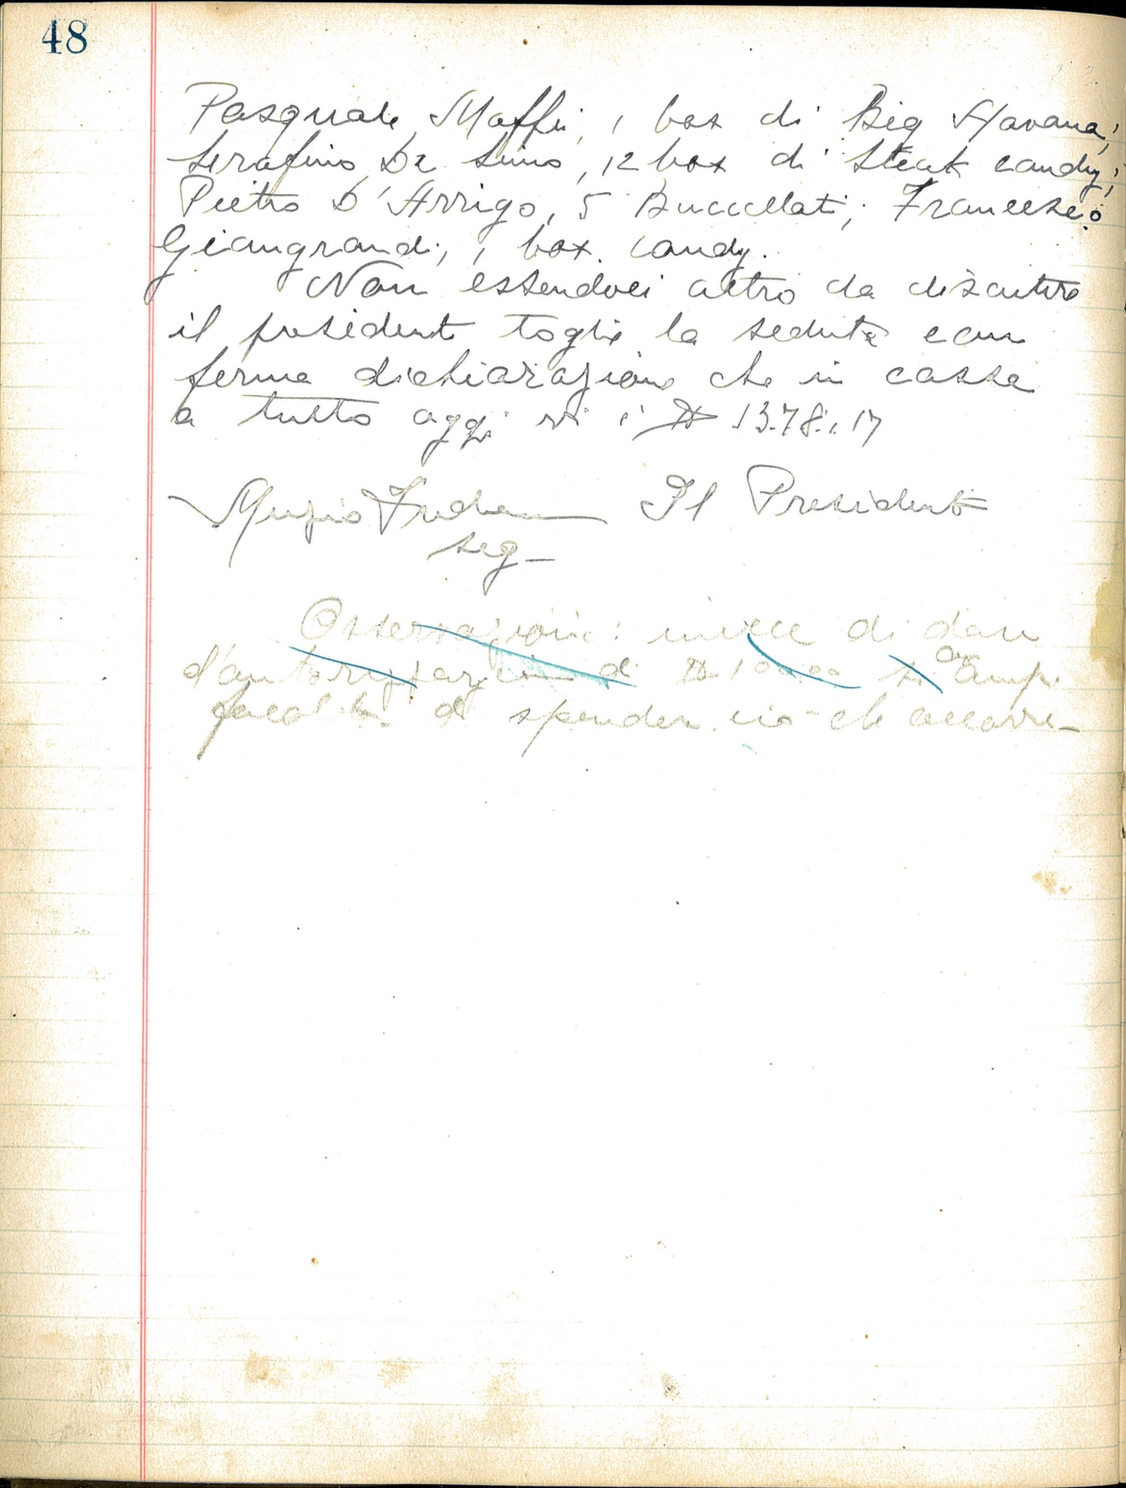 48
Pasquale Maffei, 1 box di Big Havana;
Serafino De Simo, 12 box di Steak candy;
Pietro D'Arrigo, 5 Buccellati; Francesco
Giangrandi, 1 box. candy.
Non essendovi altro da discutere
il presidente toglie la seduta con
ferma dichiarazione che in cassa
a tutto oggi vi è $ 1378.17
Muzio Il Presidente
seg-
Osservazione: invece di dare
d'autorizzazione di $ 100.00 si ampi
facoltà di spendere ciò che occorre-